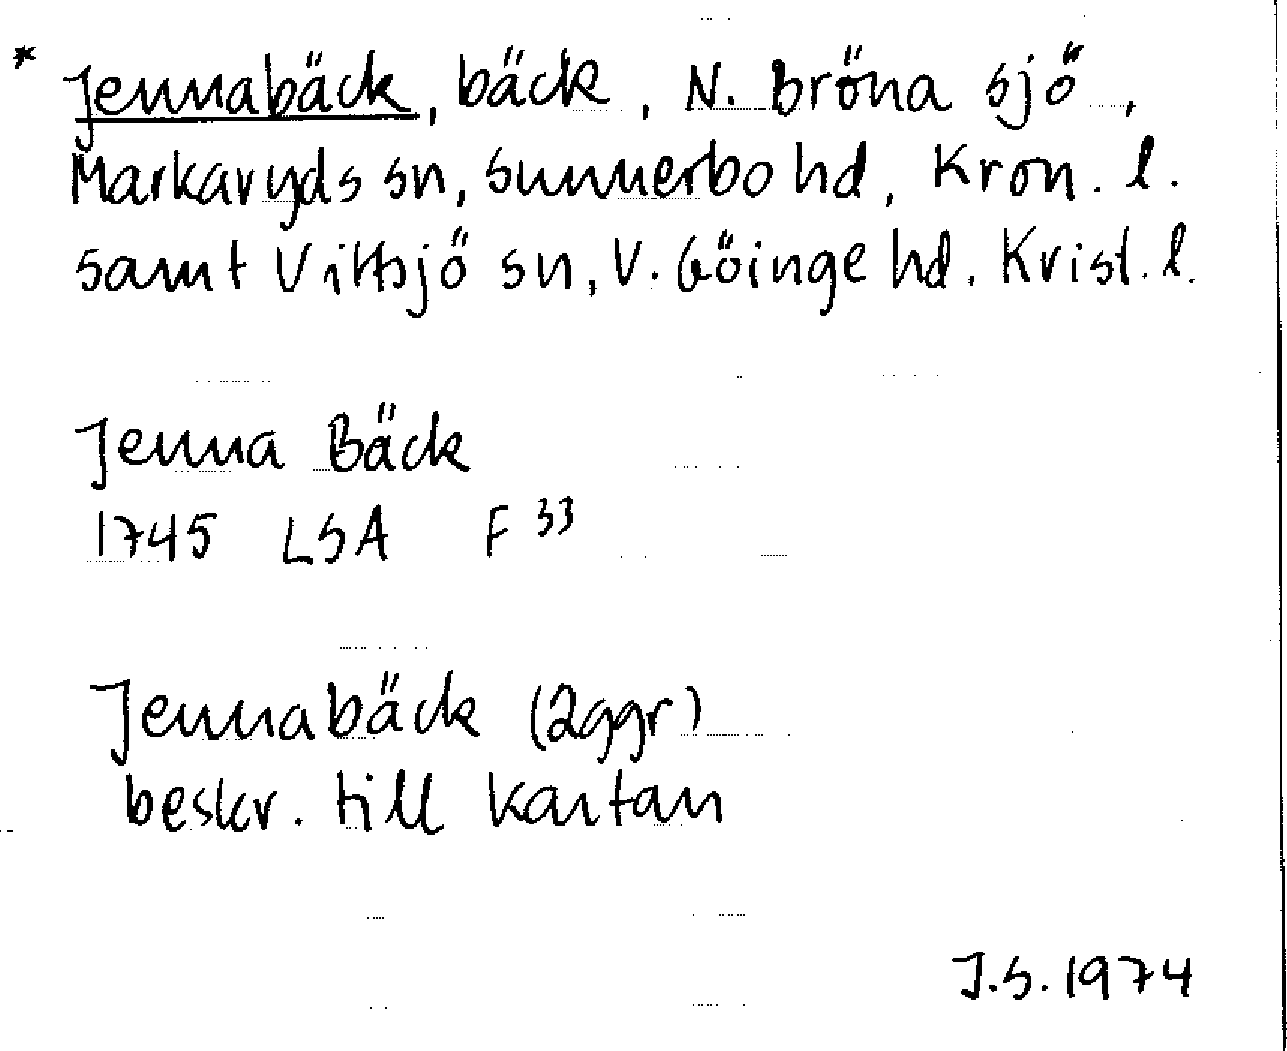 * Jennabäck, bäck, N. Bröna sjö,
Markaryds sn, Sunnerbo hd, Kron. l.
samt Vittsjö sn, V. Göinge hd. Krist. l.
Jenna Bäck
1745 LSA F 33
Jennabäck (2ggr)
beskr. till kartan
J.S. 1974